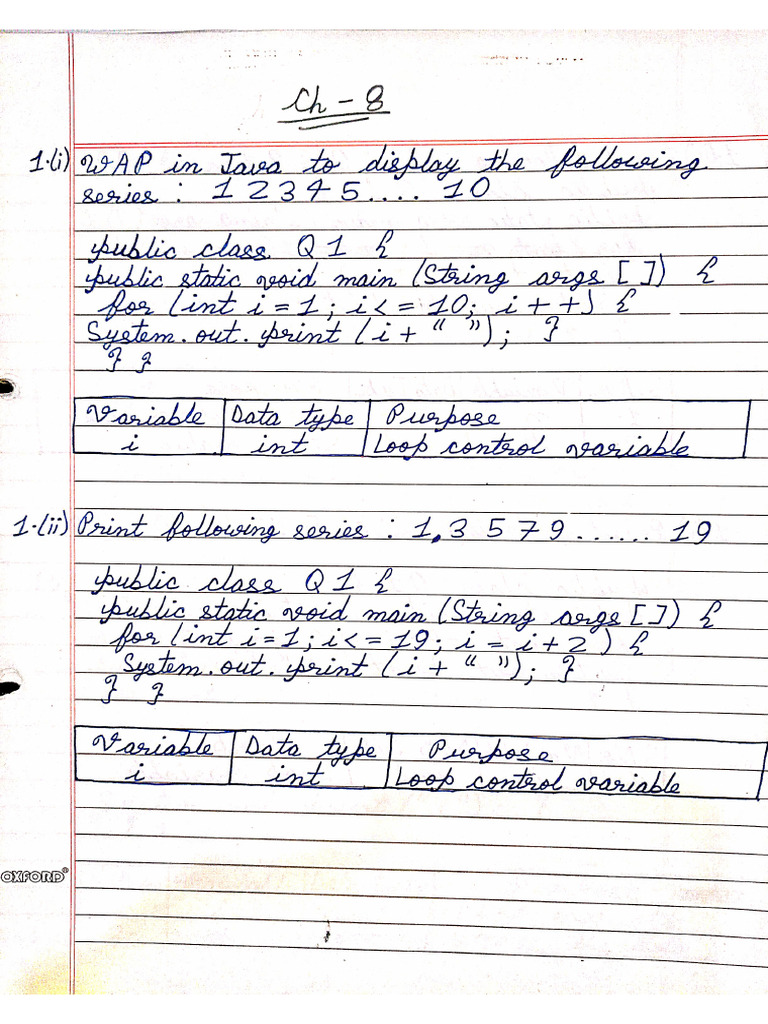 Ch - 8
1.(i) WAP in Java to display the following
series : 1 2 3 4 5 .... 10
public class Q1 {
public static void main (String args [ ]) {
for (int i = 1 ; i <= 10; i + +) {
System.out.print (i + " "); }
} }
Variable Data type Purpose
i int Loop control variable
1.(ii) Print following series : 1, 3 5 7 9 ...... 19
public class Q1 {
public static void main (String args [ ]) {
for (int i = 1 ; i <= 19 ; i = i + 2 ) {
System.out.print (i + " "); }
} }
Variable Data type Purpose
i int Loop control variable
OXFORD®